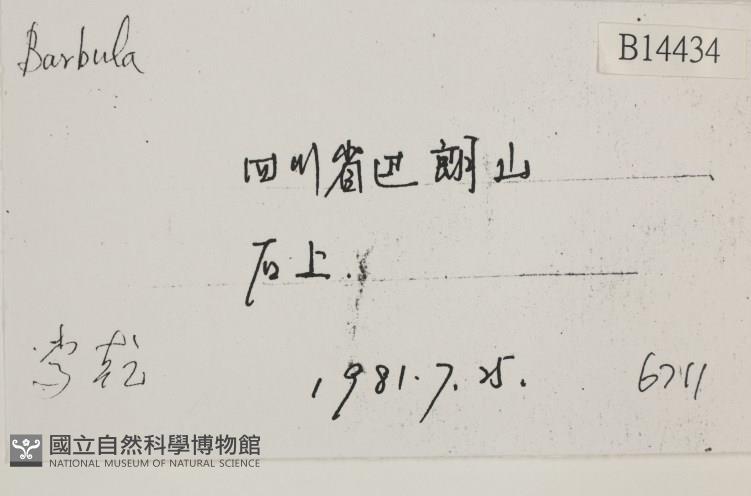 Barbula
B14434
四川省巴朗山
石上.
1981.7.25.
國立自然科學博物館
NATIONAL MUSEUM OF NATURAL SCIENCE